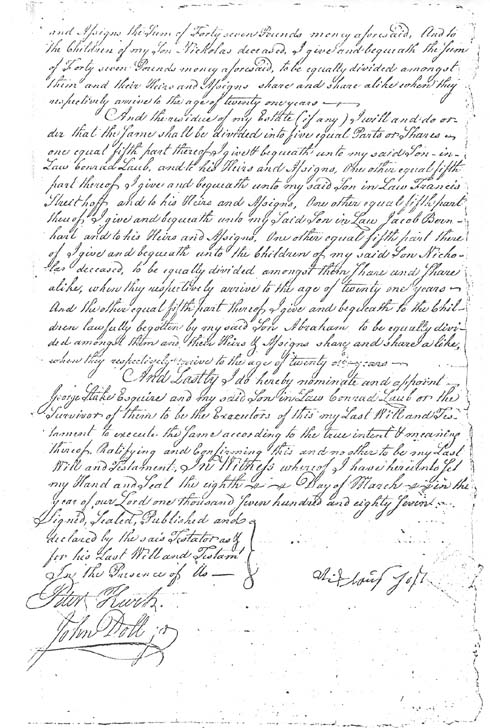 and Assigns the Sum of Forty seven Pounds money aforesaid, And to
the Children of my Son Nicholas deceased, I give and bequeath the Sum
of Forty seven Pounds money aforesaid, to be equally divided amongst
them and their Heirs and Assigns share and share alike when they
respectively arrive to the age of twenty one years —
And the residue of my Estate (if any) I will and do or-
der that the same shall be divided into five equal Parts or Shares
one equal fifth part thereof I give & bequeath unto my said Son-in-
Law Conrad Laub, and to his Heirs and Assigns, One other equal fifth
part thereof I give and bequeath unto my said Son in Law Francis
and to his Heirs and Assigns, One other equal fifth part
thereof I give and bequeath unto my Said Son in Law Jacob Bern-
hart and to his Heirs and Assigns, One other equal fifth part there
of I give and bequeath unto the Children of my said Son Nicho-
las deceased, to be equally divided amongst them Share and Share
alike, when they respectively arrive to the age of twenty one Years —
And the other equal fifth part thereof, I give and bequeath to the Chil-
dren lawfully begotten by my said Son Abraham to be equally divi-
ded amongst them and their Heirs & Assigns share and share alike,
when they respectively arrive to the age of twenty one years —
And Lastly I do hereby nominate and appoint
George Stake Esquire and my said Son in Law Conrad Laub or the
Survivor of them to be the Executors of this my Last Will and Tes-
tament to execute the same according to the true intent & meaning
thereof, Ratifying and Confirming this and no other to be my Last
Will and Testament. In Witness whereof I have hereunto Set
my Hand and Seal the eighth Day of March in the
Year of our Lord one thousand Seven hundred and eighty Seven.
Signed, Sealed, Published and
declared by the said Testator as &
for his Last Will and Testamt
In the Presence of Us —
Peter Kurtz.
John Doll jr